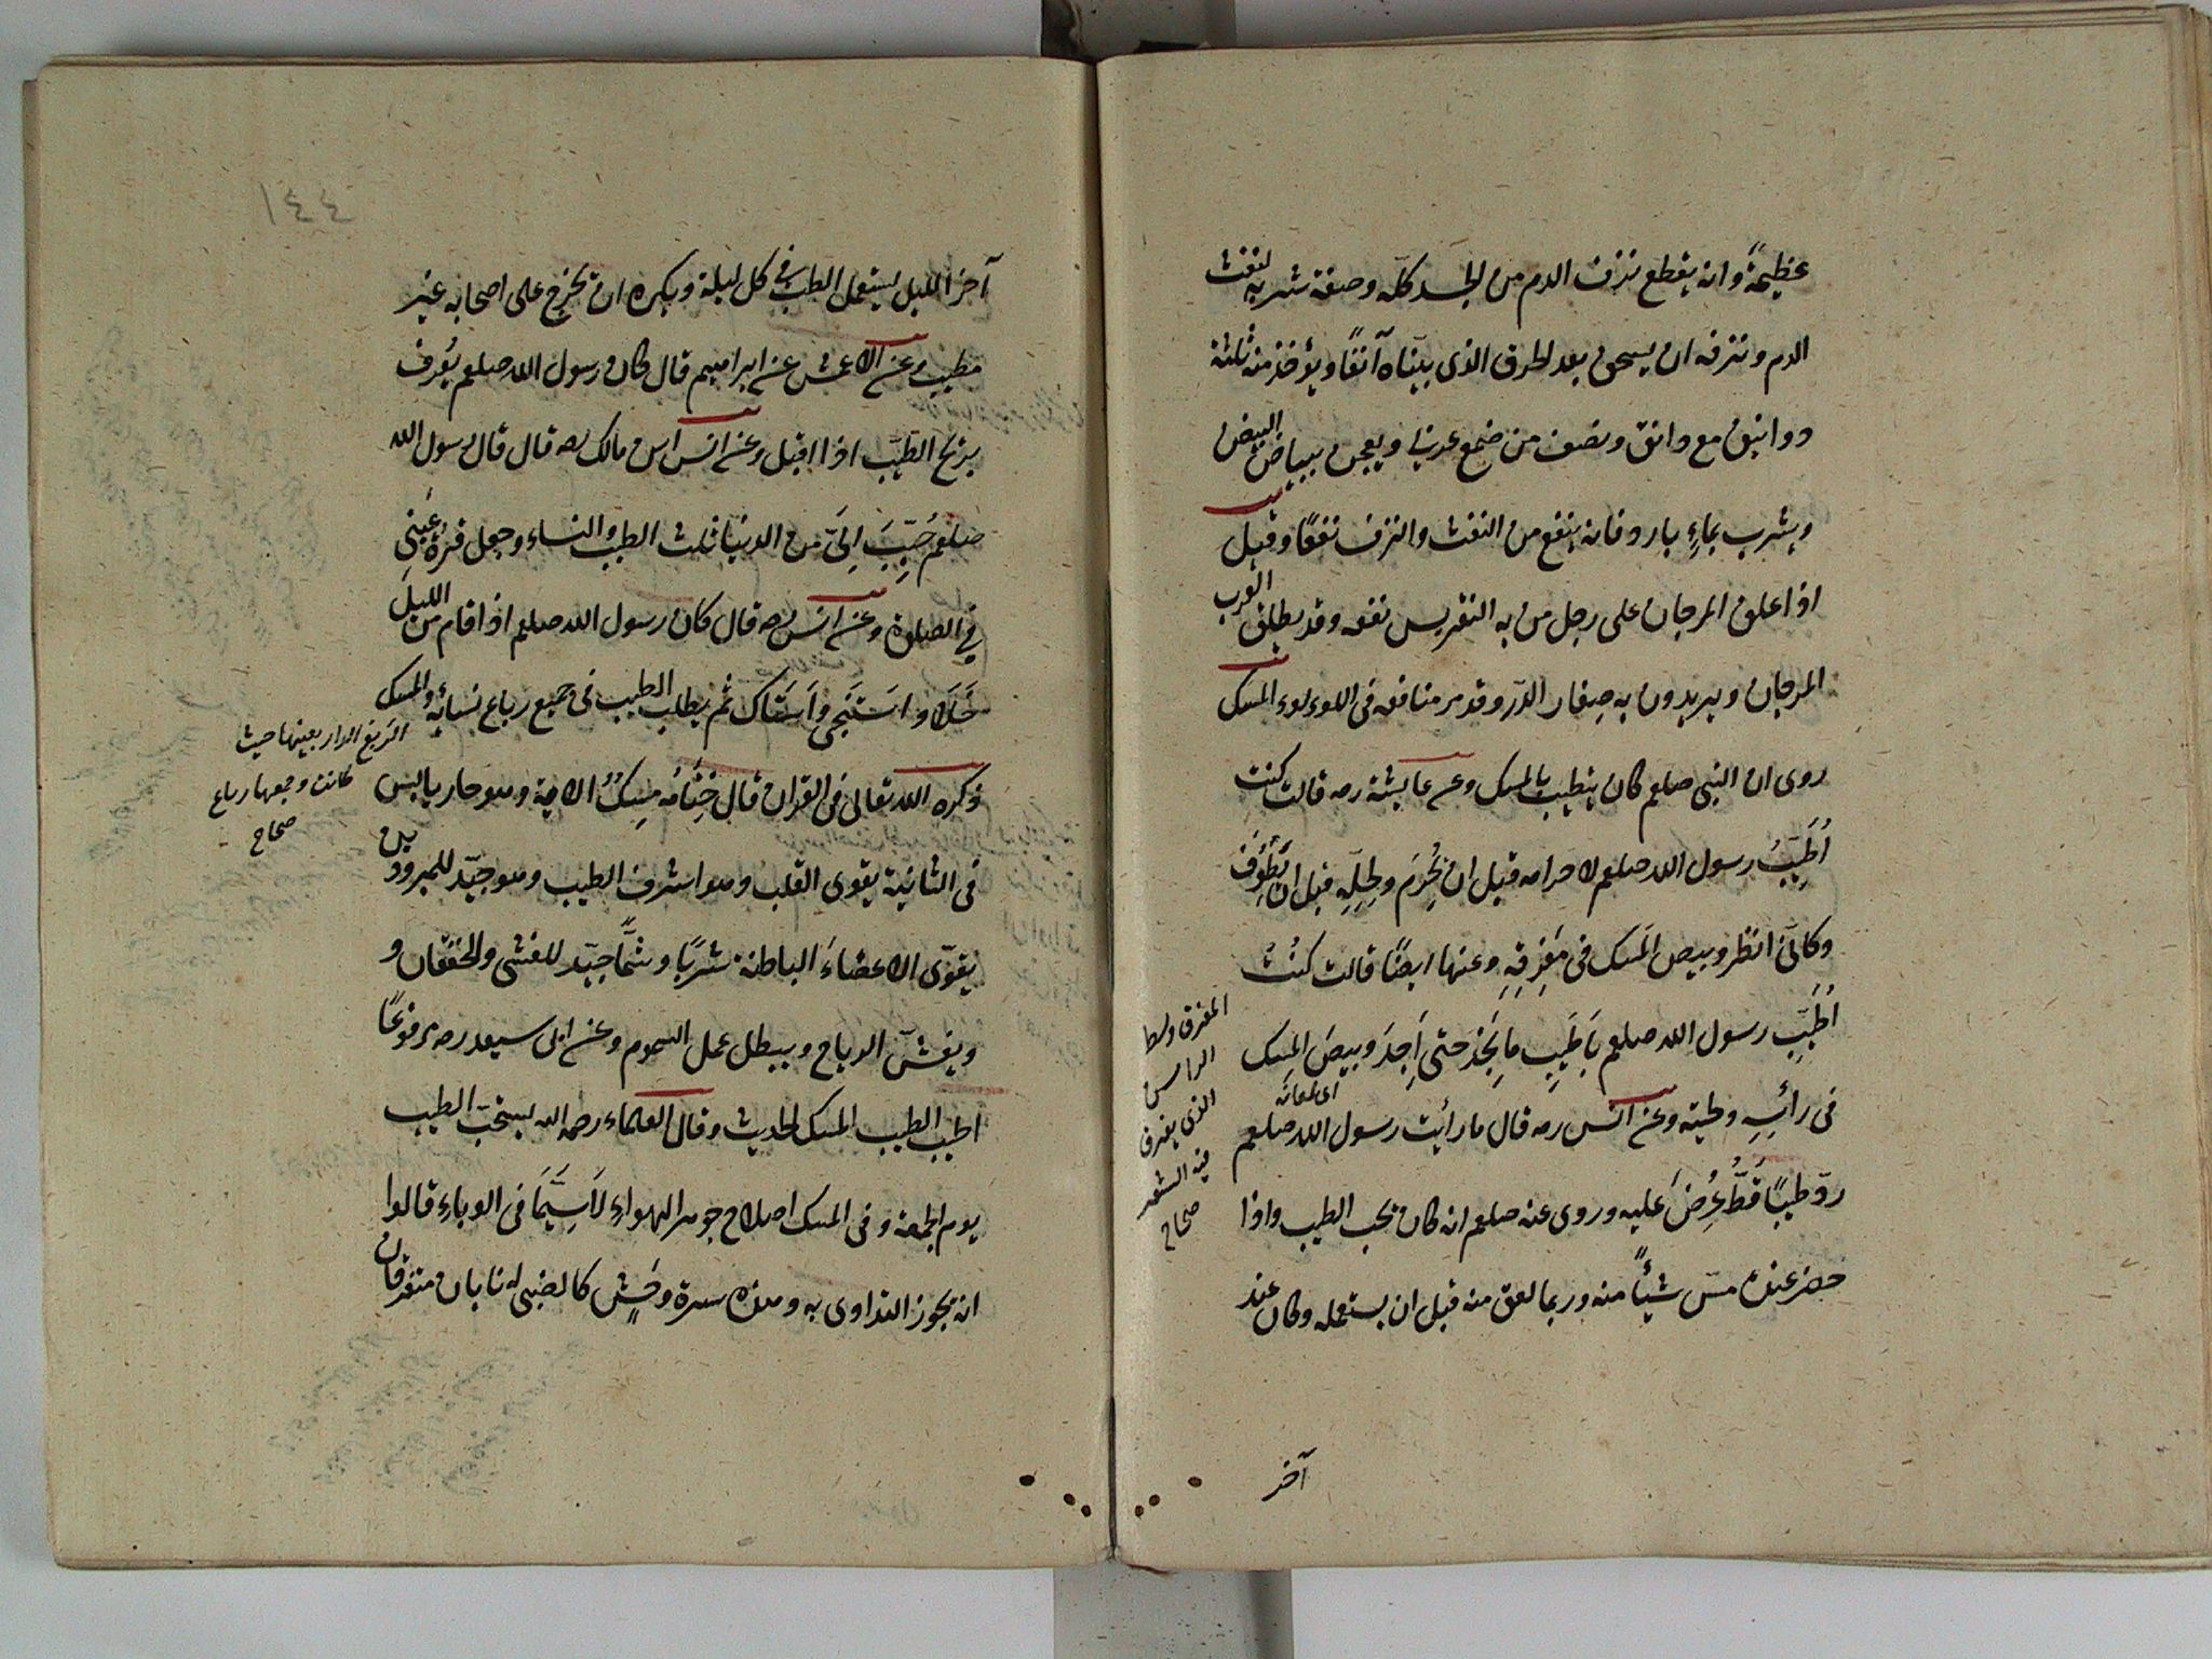 عظيمةً وانه يقطع نزف الدم من الجسد كلّه وصفة شربه لنفث
الدم ونزفه ان يسحق بعد الحرق الذى بيّناه آنفًا ويؤخذ منه ثلثة
دوانيق مع دانق ونصف من ضمغ عربى ويعجن ببياض البيض
ويشرب بماءٍ بارد فانه ينفع من النفث والنزف نفعًا وقيل
اذا علق المرجان على رجل من به النقريس نفعه وقد يطلق العرب
المرجان ويريدون به صغار الدّر وقد مر منافعه فى اللوءلوء المسك
روى ان النبى صلعم كان يتطيب بالمسك وعن عايشة رضه قالت كنت
اُطَيِّبُ رسول الله صلعم لاحرامه قبل ان يُحْرِمَ ولِحِلِّهِ قبل ان يَطُوفَ
وكانّى انظر وبيص المسك فى مَفْرِقِهِ وعنها ايضًا قالت كنْتُ
اُطَيِّبُ رسول الله صلعم بَاَطْيَبِ مَا يَجِدُ حتى اَجِدَ وبيصَ المِسك
اى لمعانه
فى رأسِهِ ولحيته وعن انس رضه قال ما رأيت رسول الله صلعم
ردّ طيبًا قَطُّ عُرِضَ عليه وروى عنه صلعم انه كان يحب الطيب واذا
حضر عنده مسّ شيئًا منه وربما لعق منه قبل ان يستعمله وكان عند
المفرق وسط
الراس
الذى يفرق
فيه الشعر
صحاح
آخر
١٤٤
آخر الليل يستعمل الطيب فى كل ليلة ويكره ان يخرج على اصحابه غير
مطيب وعن الاعمش عن ابراهيم قال كان رسول الله صلعم يُعرف
بريح الطيّب اذا اقبل وعن انس ابن مالك رضه قال قال رسول الله
صلعم حُبِّبَ اِلَىَّ من الدنيا ثلث الطيب والنساء وجعل قرّة عينى
فى الصلوة وعن انس رضه قال كان رسول الله صلعم اذا قام من الليل
خَلَا واستَنْجى وَاَسْتَاك ثم يطلب الطيب فى جميع رباع نسائه والمسك
ذكره الله تعالى فى القران قال خِتَامُه مِسكٌ الاية وهو حار يابس
فى الثانية يقوى القلب وهو اشرف الطيب وهو جيّد للمبرودين
يقوّى الاعضاءَ الباطنة شربًا وشمًّا جيّد للغشى والخفقان و
ويفشّ الرياح ويبطل عمل السموم وعن ابى سعيد رضه مرفوعًا
اطيب الطيب المسك الحديث وقال العلماء رحمه الله يستحبّ الطيب
يوم الجمعة وفى المسك اصلاح جوهر الهواءِ لَاسِيَّمَا فى الوباءِ قالوا
انه يجوز التداوى به وهذه سرة وحْشٍ كالظبى له نابان متفرقان
الربع الدار بعينها حيث
كانت وجمعها رباع
صحاح